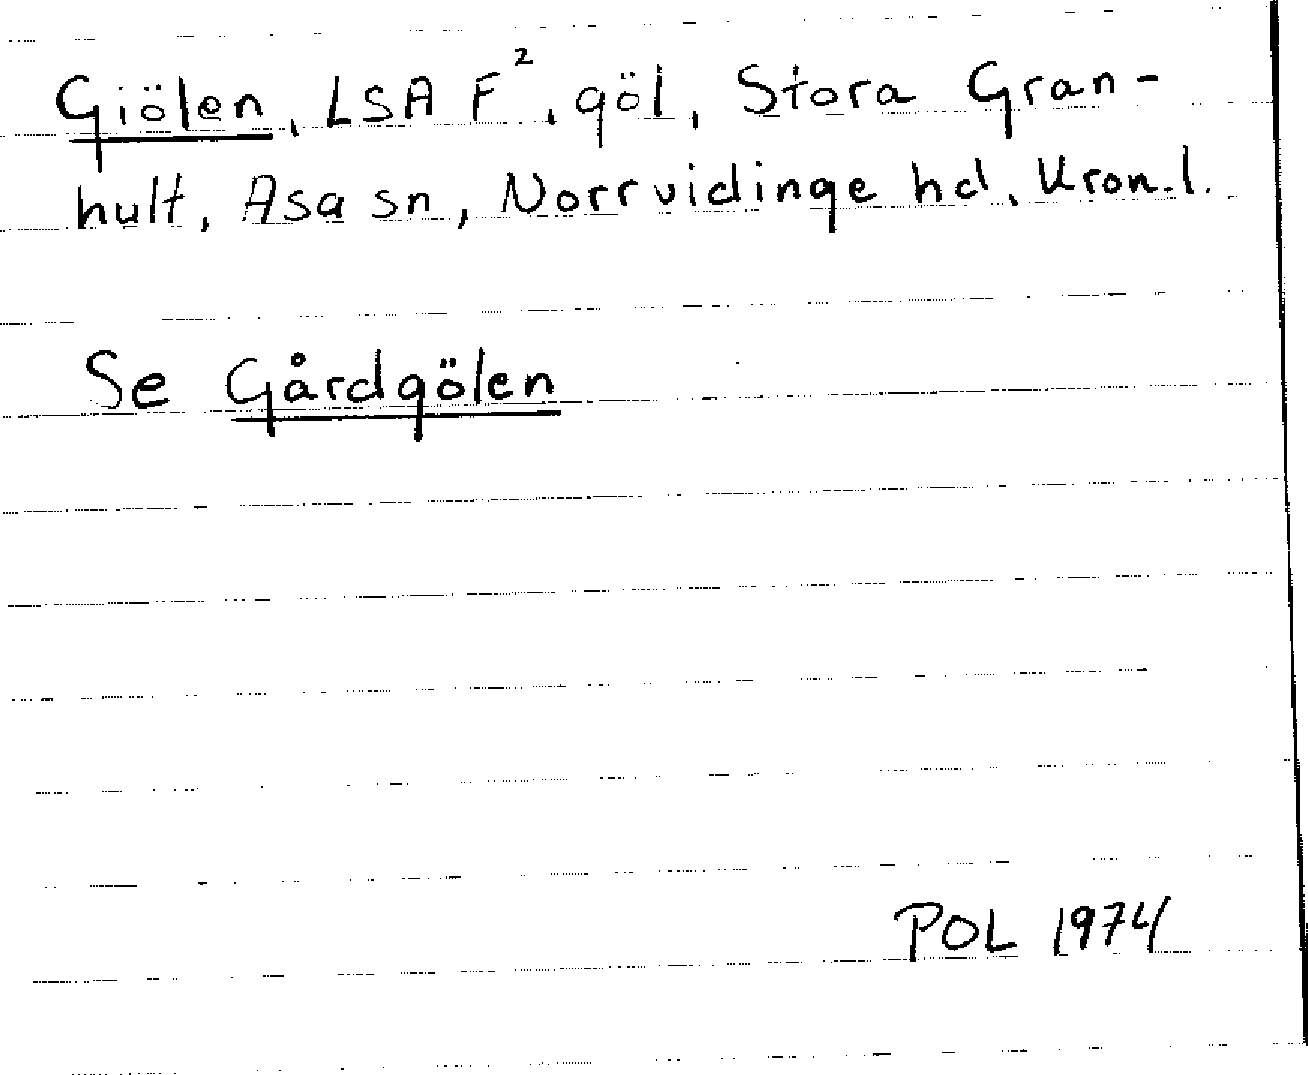 Giölen, LSA F², göl, Stora Gran-
hult, Asa sn, Norrvidinge hd, Kron.l.
Se Gårdgölen
POL 1974